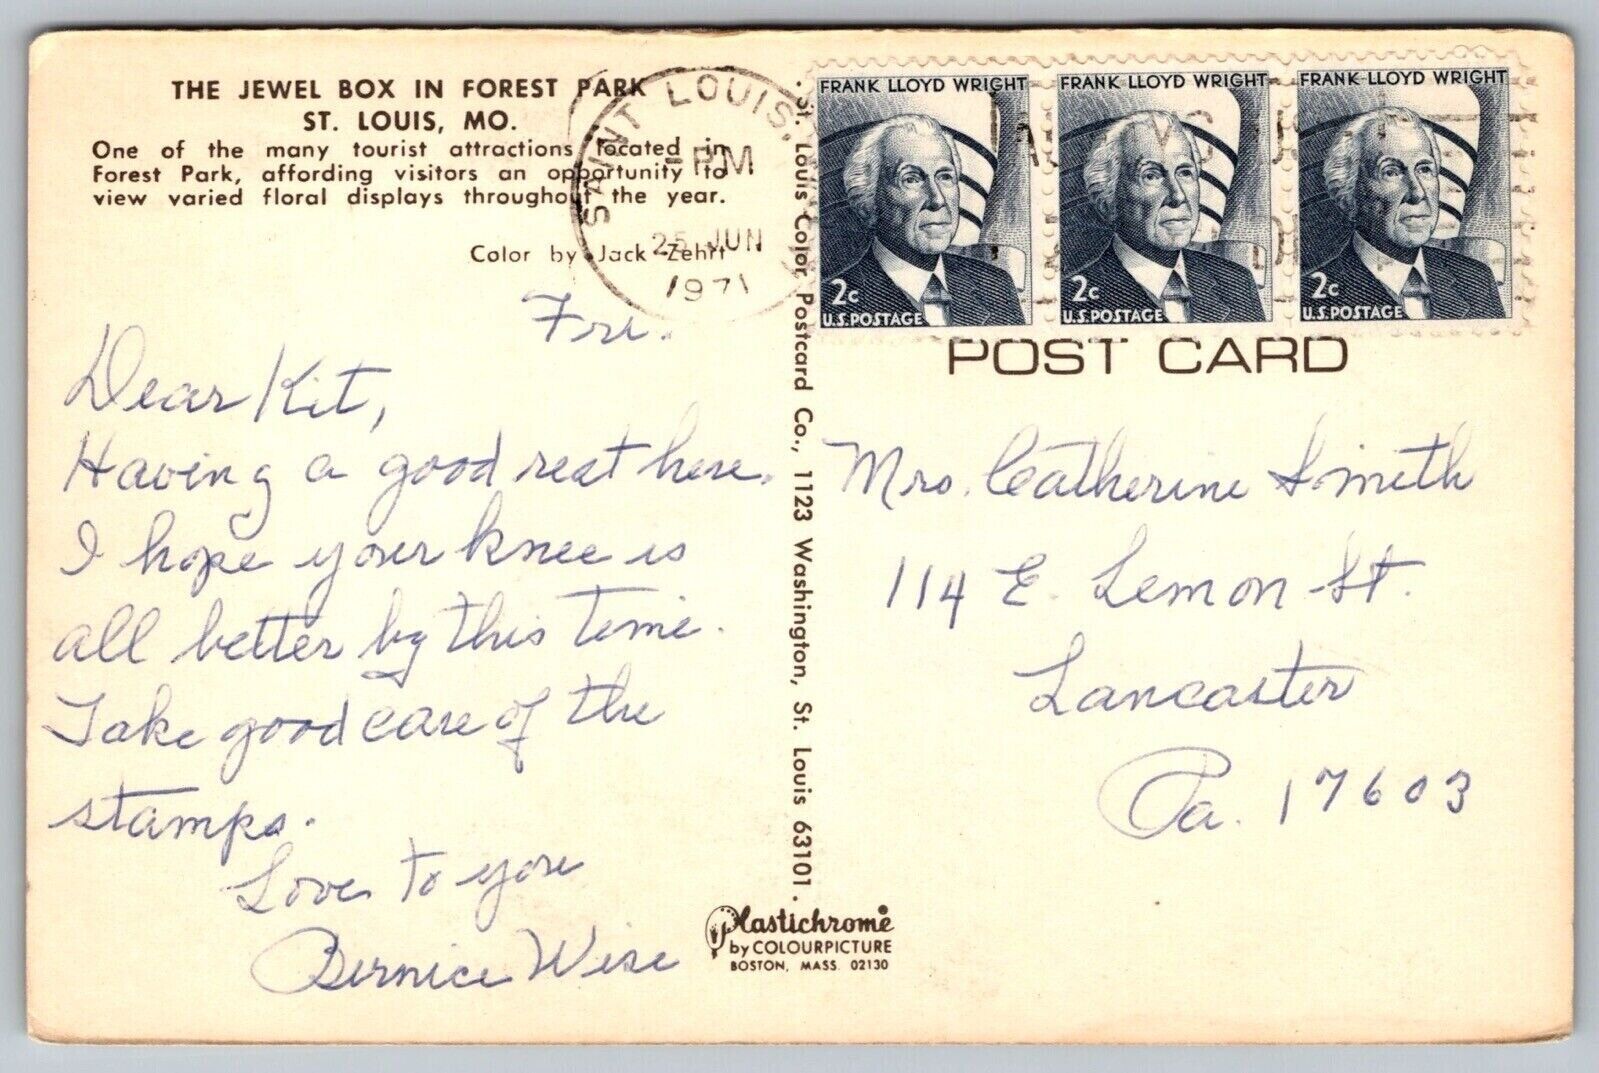 THE JEWEL BOX IN FOREST PARK
ST. LOUIS, MO.
One of the many tourist attractions located in
Forest Park, affording visitors an opportunity to
view varied floral displays throughout the year.
Color by Jack Zehrt
SAINT LOUIS,
PM
25 JUN
1971
Fri.
Dear Kit,
Having a good rest here.
I hope your knee is
all better by this time.
Take good care of the
stamps.
Love to you
Bernice Wise
St. Louis Color Postcard Co., 1123 Washington, St. Louis 63101
Plastichrome
by COLOURPICTURE
BOSTON, MASS. 02130
FRANK LLOYD WRIGHT
2c
U.S. POSTAGE
FRANK LLOYD WRIGHT
2c
U.S. POSTAGE
FRANK LLOYD WRIGHT
2c
U.S. POSTAGE
POST CARD
Mrs. Catherine Smith
114 E. Lemon St.
Lancaster
Pa. 17603